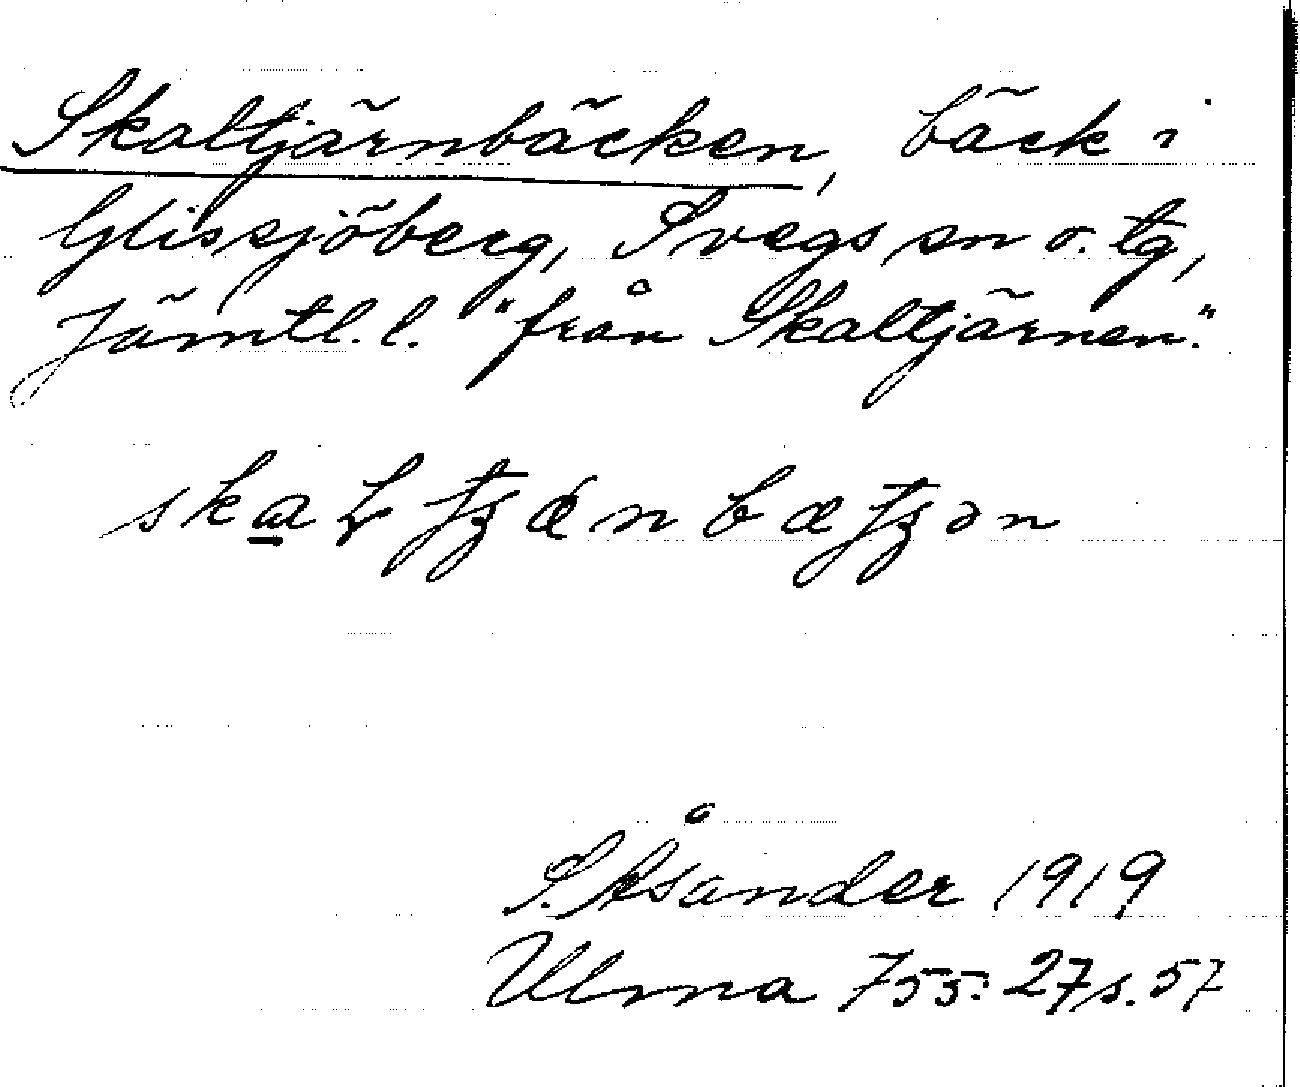 Skaltjärnbäcken, bäck i
Glissjöberg, Svegs sn o. tg,
Jämtl. l. "från Skaltjärnen."
S. Åsander 1919
Ulma 755:27 s. 57